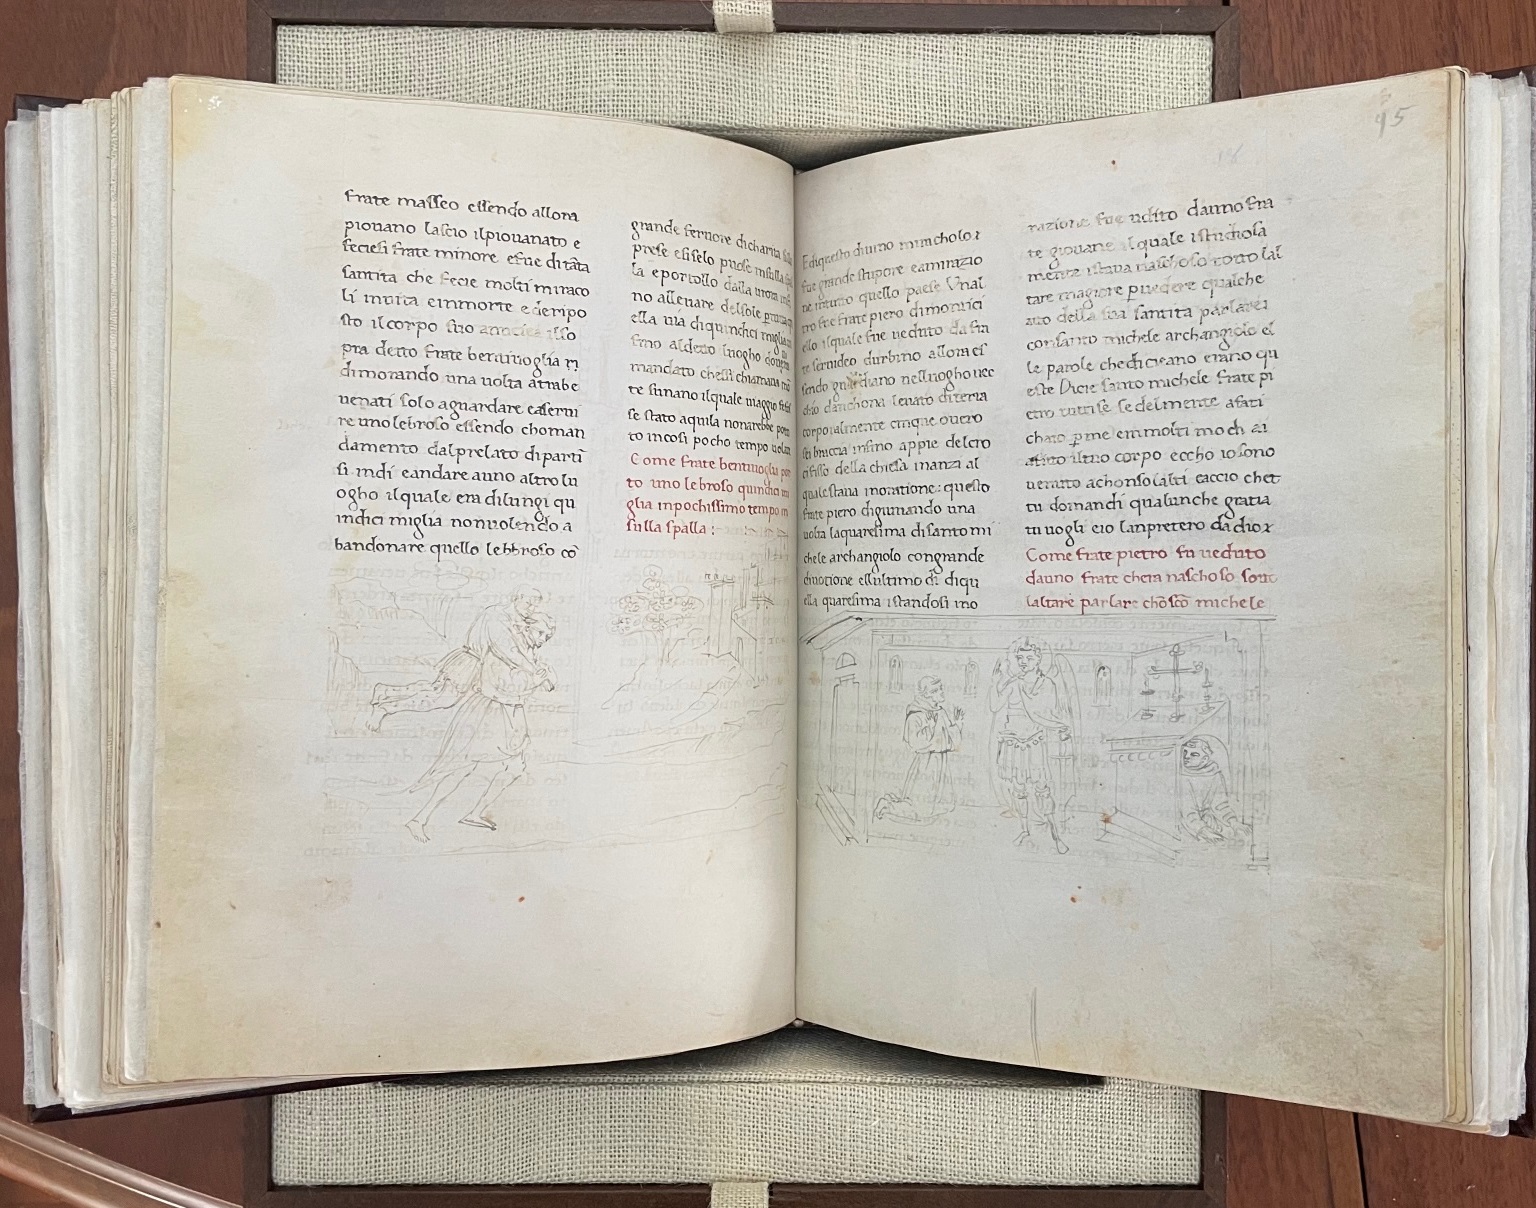 frate masseo essendo allora
piouano lascio ilpiouanato e
feciesi frate minore efue di tāta
santita che fecie molti miraco
li inuita einmorte ederipo
sto il corpo suo
pra detto frate bentiuoglia
dimorando una uolta atrabe
uenati solo aguardare easerui
re uno lebroso essendo choman
damento dalprelato dipartī
si indi eandare auno altro lu
ogho ilquale era dilungi qu
indici miglia nonuolendo a
bandonare quello lebbroso cō
grande feruore dicharita
prese esiselo puose insulla
la eportollo dalla
no alleuare delsole
ella uia diquindici miglia
fino aldetto luogho
mandato chessi chiamaua
te sanano ilquale uiaggio
se stato aquila nonarebbe
to incosi pocho tempo
Come frate bentiuoglia por
to uno lebroso quindici mi
glia inpochissimo tempo in
sulla spalla :
Ediquesto diuino miracholo
fue grande stupore eamirazio
ne intutto quello paese Unal
tro fue frate piero dimonti
ello ilquale fue ueduto da fra
te seruideo durbino allora es
sendo guardiano nelluogho uec
chio danchona leuato diterra
corporalmente cinque ouero
sei braccia insino appie delcro
cifisso della chiesa inanzi al
quale staua inoratione: questo
frate piero digiunando una
uolta laquaresima di santo mi
chele archangiolo congrande
diuotione ellultimo dì diqu
ella quaresima istandosi ino
razione fue udito dauno fra
te giouane ilquale istudiosa
mente istaua naschoso sotto lal
tare
atto della sua santita parlare
consanto michele archangiolo e
le parole chediceano erano qu
este Dicie santo michele frate pi
etro tu
chato p me emmolti modi ai
iltuo corpo eccho io sono
uenuto achonsolarti caccio chet
tu domandi qualunche gratia
tu uogli eio lanpretero da dio
Come frate pietro fu ueduto
dauno frate chera naschoso sotto
laltare parlare chōsco michele
95